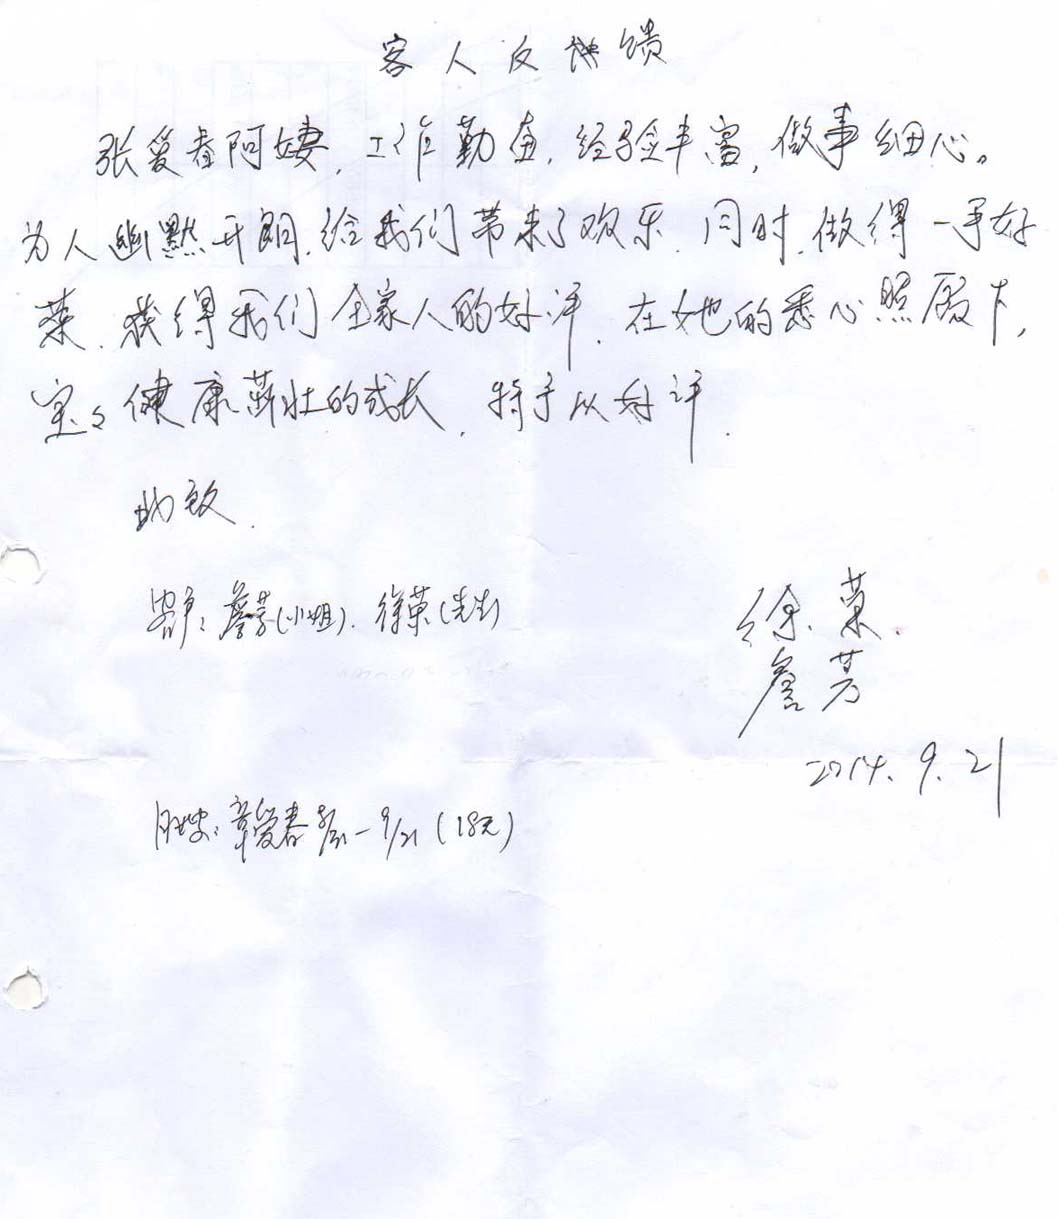 客人反馈
张爱春阿姨,工作勤奋,经验丰富,做事细心。
为人幽默开朗,给我们带来了欢乐,同时,做得一手好
菜,获得我们全家人的好评,在她的悉心照顾下,
宝々健康茁壮的成长,特予以好评.
此致.
客户:詹芳(小姐),徐荣(先生)
徐荣.
詹芳
2014.9.21
月嫂:章爱春 8/21-9/21(18元)